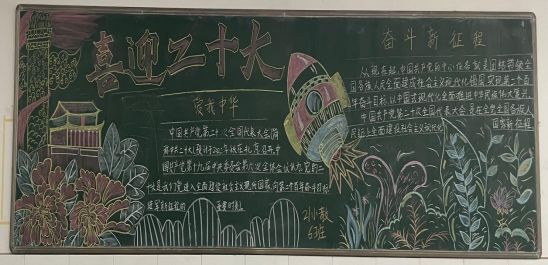 喜迎二十大
爱我中华
中国共产党第二十次全国代表大会(简
称中共二十大)预计2022年
中国共产党第十九届中央委员会第六次全体会议认为,党的二
十大是我们党进入全面建设社会主义现代化国家,向第二个百年奋斗目标
进军新征程的重要时刻
奋斗新征程
从现在起,中国共产党的中心任务就是团结带领全
国各族人民全面建成社会主义现代化强国,实现第二个百
年奋斗目标,以中国式现代化全面推进中华民族伟大复兴。
中国共产党第二十次全国代表大会是在全党全国各族人
民迈上全面建设社会主义现代化国家新征程
63班